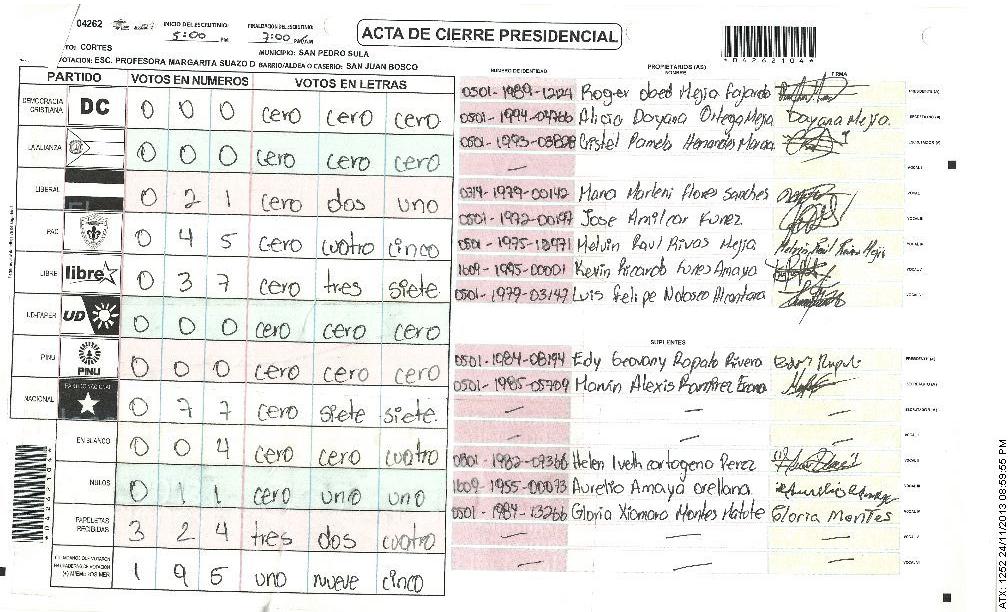 04262
INICIO DEL ESCRUTINIO: 5:00 PM
FINALIZACION DEL ESCRUTINIO: 7:00 PM
ACTA DE CIERRE PRESIDENCIAL
*04262104*
TO: CORTES
MUNICIPIO: SAN PEDRO SULA
VOTACION: ESC. PROFESORA MARGARITA SUAZO D BARRIO/ALDEA O CASERIO: SAN JUAN BOSCO
PARTIDO VOTOS EN NUMEROS VOTOS EN LETRAS
DEMOCRACIA CRISTIANA DC 0 0 0 cero cero cero
LA ALIANZA 0 0 0 cero cero cero
LIBERAL 0 2 1 cero dos uno
PAC 0 4 5 cero cuatro cinco
LIBRE libre 0 3 7 cero tres siete
UD-FAPER UD 0 0 0 cero cero cero
PINU PINU 0 0 0 cero cero cero
NACIONAL 0 7 7 cero siete siete.
EN BLANCO 0 0 4 cero cero cuatro
NULOS 0 1 1 cero uno uno
PAPELETAS RECIBIDAS 3 2 4 tres dos cuatro
1 9 5 uno nueve cinco
NUMERO DE IDENTIDAD PROPIETARIOS (AS) NOMBRE FIRMA
0501-1989-1224 Roger Obed Mejia Fajardo
0501-1994-04766 Alicia Dayana Ortega Mejia Dayana Mejia.
0501-1993-03828 Cristel Pamela
1979-00142 Maria Marleni Flores Sanches
0501-1972-00197 Jose Amilcar Funez
0501-1975-10971 Melvin Raul Rivas Mejia Melvin Raul Rivas Mejia
1609-1995-00001 Kevin Ricardo Funes Amaya
0501-1979-03147 Luis Felipe Nolasco Alcantara
SUPLENTES
0501-1984-08194 Edy Geovany Rapalo Rivera
0501-1985-05709 Marvin Alexis Ramirez
0501-1982-07366 Helen Iveth Cartagena Perez
1609-1955-00073 Aurelio Amaya Orellana
0501-1984-13266 Gloria Xiomara Montes Matute Gloria Montes
*04262104*
ATX: 1252 24/11/2013 08:59:55 PM